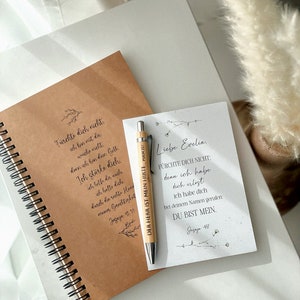 Fürchte dich nicht,
ich bin mit dir,
weiche nicht,
denn ich bin dein Gott.
Ich stärke dich,
ich helfe dir auch,
ich halte dich
Jesaja 41, 10
DER HERR IST MEIN HIRTE
Liebe Evelin
FÜRCHTE DICH NICHT;
denn ich habe
dich erlöst;
ich habe dich
bei deinem Namen gerufen;
DU BIST MEIN.
Jesaja 43,1